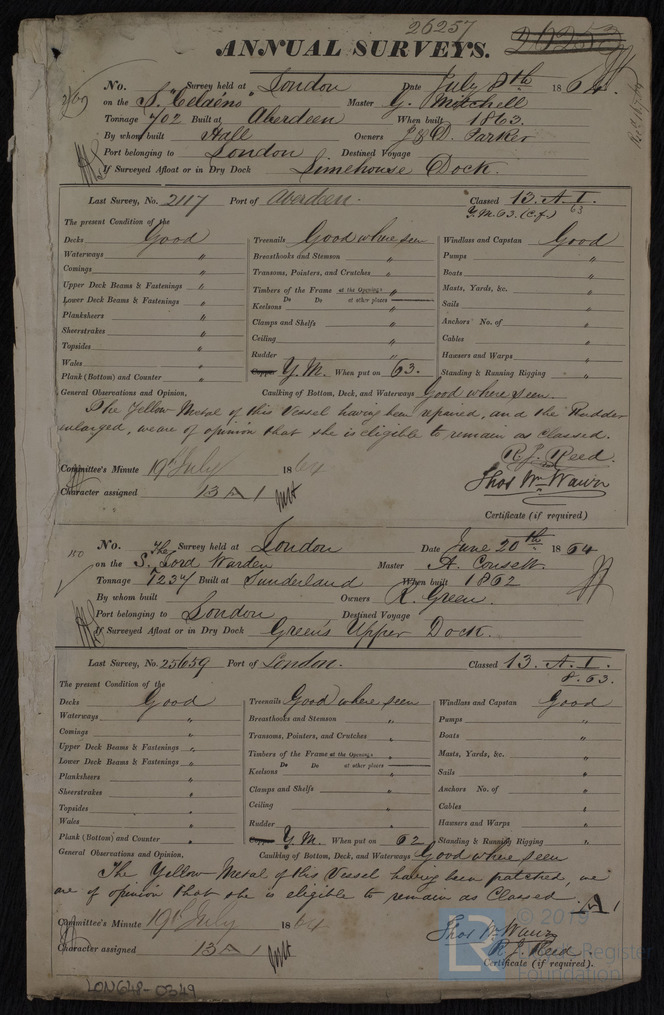 26257
26253
ANNUAL SURVEYS.
No. Survey held at London Date July 8th 1864.
on the S. Celaeno Master G. Mitchell
Tonnage 702 Built at Aberdeen When built 1863.
By whom built Hall Owners J & D. Parker
Port belonging to London Destined Voyage
If Surveyed Afloat or in Dry Dock Limehouse Dock.
Last Survey, No. 2117 Port of Aberdeen. Classed 13. A. I.
63
Y.M. 63. (C.f.)
The present Condition of the
Decks Good Treenails Good where seen Windlass and Capstan Good
Waterways " Breasthooks and Stemson " Pumps "
Comings " Transoms, Pointers, and Crutches " Boats "
Upper Deck Beams & Fastenings " Timbers of the Frame at the Openings " Masts, Yards, &c. "
Do Do at other places
Lower Deck Beams & Fastenings " Keelsons " Sails "
Planksheers " Clamps and Shelfs " Anchors No. of "
Sheerstrakes " Ceiling " Cables "
Topsides " Rudder " Hawsers and Warps "
Wales " Copper Y.M. When put on 63. Standing & Running Rigging "
Plank (Bottom) and Counter "
General Observations and Opinion, Caulking of Bottom, Deck, and Waterways Good where seen.
The Yellow Metal of this Vessel having been repaired, and the Rudder
enlarged, we are of opinion that she is eligible to remain as classed.
R. J. Reed.
Committee's Minute 19th July 1864
Thos Wm Wawn
Character assigned 13 A 1
Certificate (if required)
150
No. Survey held at London Date June 20th 1864
on the The S. Lord Warden Master A. Consett
Tonnage 1237 Built at Sunderland When built 1862
By whom built Owners R. Green.
Port belonging to London Destined Voyage
If Surveyed Afloat or in Dry Dock Green's Upper Dock.
Last Survey, No. 25659 Port of London. Classed 13. A. I.
8. 63.
The present Condition of the
Decks Good Treenails Good where seen Windlass and Capstan Good
Waterways " Breasthooks and Stemson " Pumps "
Comings " Transoms, Pointers, and Crutches " Boats "
Upper Deck Beams & Fastenings " Timbers of the Frame at the Openings " Masts, Yards, &c. "
Do Do at other places
Lower Deck Beams & Fastenings " Keelsons " Sails "
Planksheers " Clamps and Shelfs " Anchors No. of "
Sheerstrakes " Ceiling " Cables "
Topsides " Rudder " Hawsers and Warps "
Wales " Y.M. When put on 62 Standing & Running Rigging "
Plank (Bottom) and Counter "
General Observations and Opinion, Caulking of Bottom, Deck, and Waterways Good where seen
The Yellow Metal of this Vessel having been patched, we
are of opinion that she is eligible to remain as Classed. A 1
Committee's Minute 19th July 1864
Thos W Wawn
Character assigned 13 A 1
R. J. Reed
Certificate (if required).
LON648-0349
© 2019
LR
Lloyd's Register
Foundation